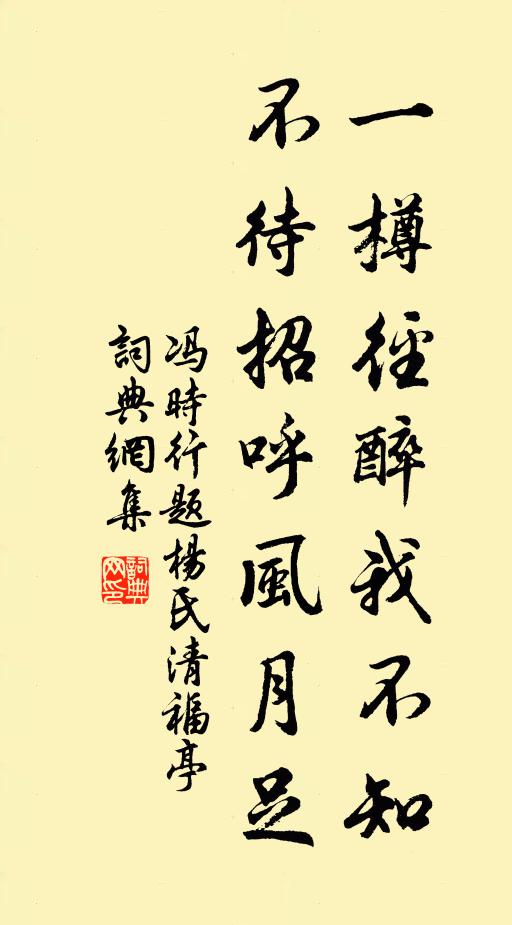 一樽徑醉我不知
不待招呼風月足
冯時行题楊氏清福亭
詞典網集
詞典
网印